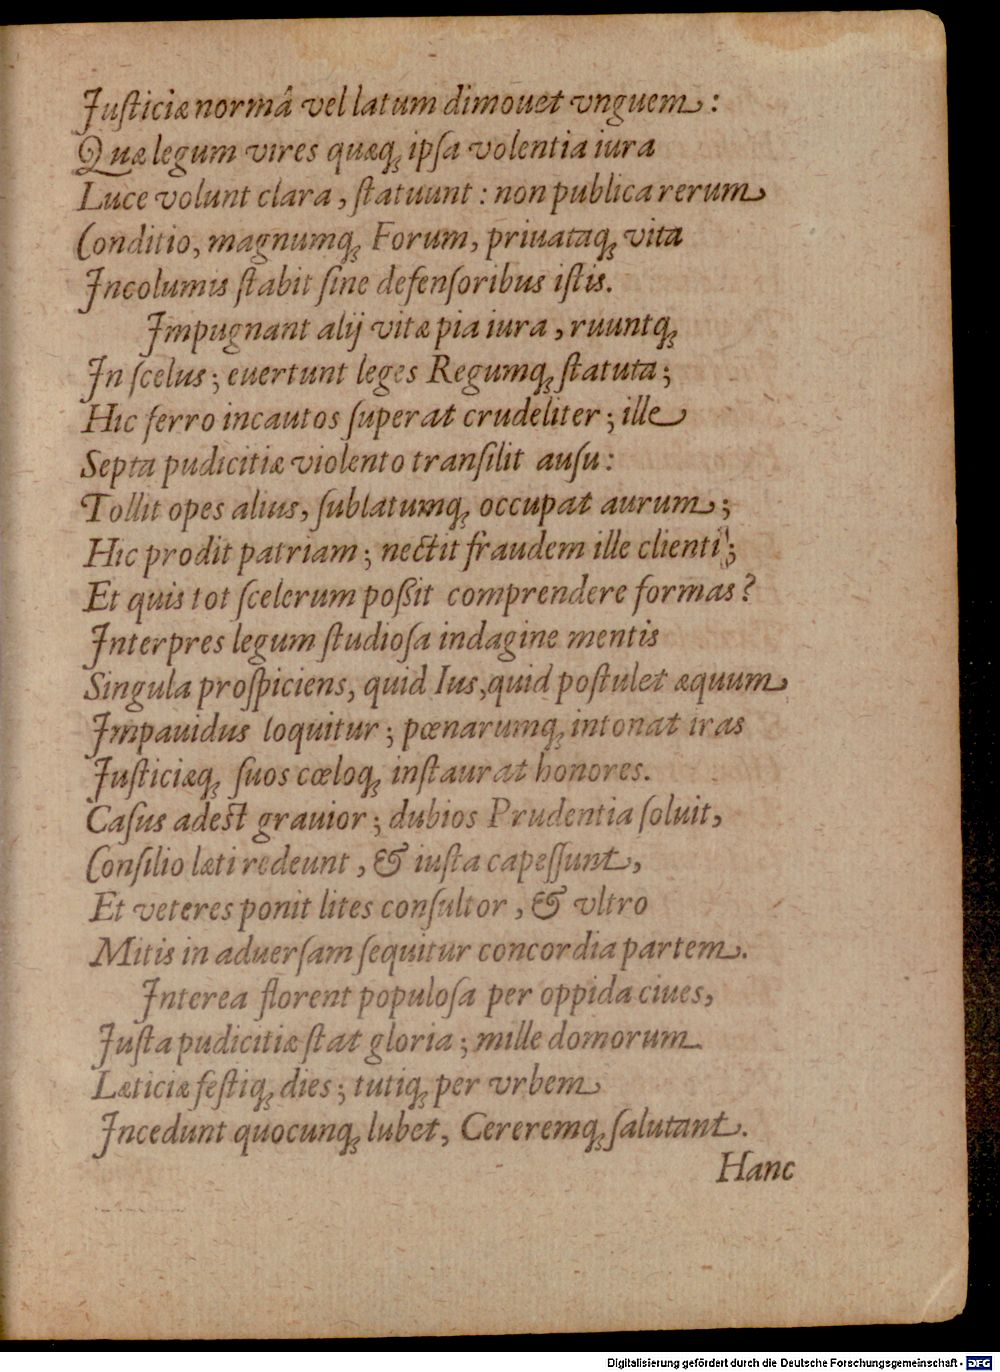 Juſticiæ normâ vel latum dimouet vnguem :
Quæ legum vires quæq; ipſa volentia iura
Luce volunt clara, ſtatuunt : non publica rerum
Conditio, magnumq; Forum, priuataq; vita
Incolumis ſtabit ſine defenſoribus iſtis.
Impugnant alij vitæ pia iura, ruuntq;
In ſcelus ; euertunt leges Regumq; ſtatuta ;
Hic ferro incautos ſuperat crudeliter ; ille
Septa pudicitiæ violento tranſilit auſu :
Tollit opes alius, ſublatumq; occupat aurum ;
Hic prodit patriam ; nectit fraudem ille clienti ;
Et quis tot ſcelerum poſsit comprendere formas ?
Interpres legum ſtudioſa indagine mentis
Singula proſpiciens, quid Ius, quid poſtulet æquum
Impauidus loquitur ; pœnarumq; intonat iras
Juſticiæq; ſuos cœloq; inſtaurat honores.
Caſus adeſt grauior ; dubios Prudentia ſoluit,
Conſilio læti redeunt, & iuſta capeſſunt,
Et veteres ponit lites conſultor, & vltro
Mitis in aduerſam ſequitur concordia partem.
Interea florent populoſa per oppida ciues,
Juſta pudicitiæ ſtat gloria ; mille domorum
Læticiæ feſtiq; dies ; tutiq; per vrbem
Incedunt quocunq; lubet, Cereremq; ſalutant.
Hanc
Digitalisierung gefördert durch die Deutsche Forschungsgemeinschaft - DFG